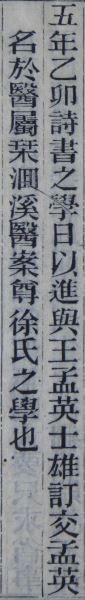 五年乙卯詩書之學日以進與王孟英士雄訂交孟英
名於醫屬栞洄溪醫案尊徐氏之學也